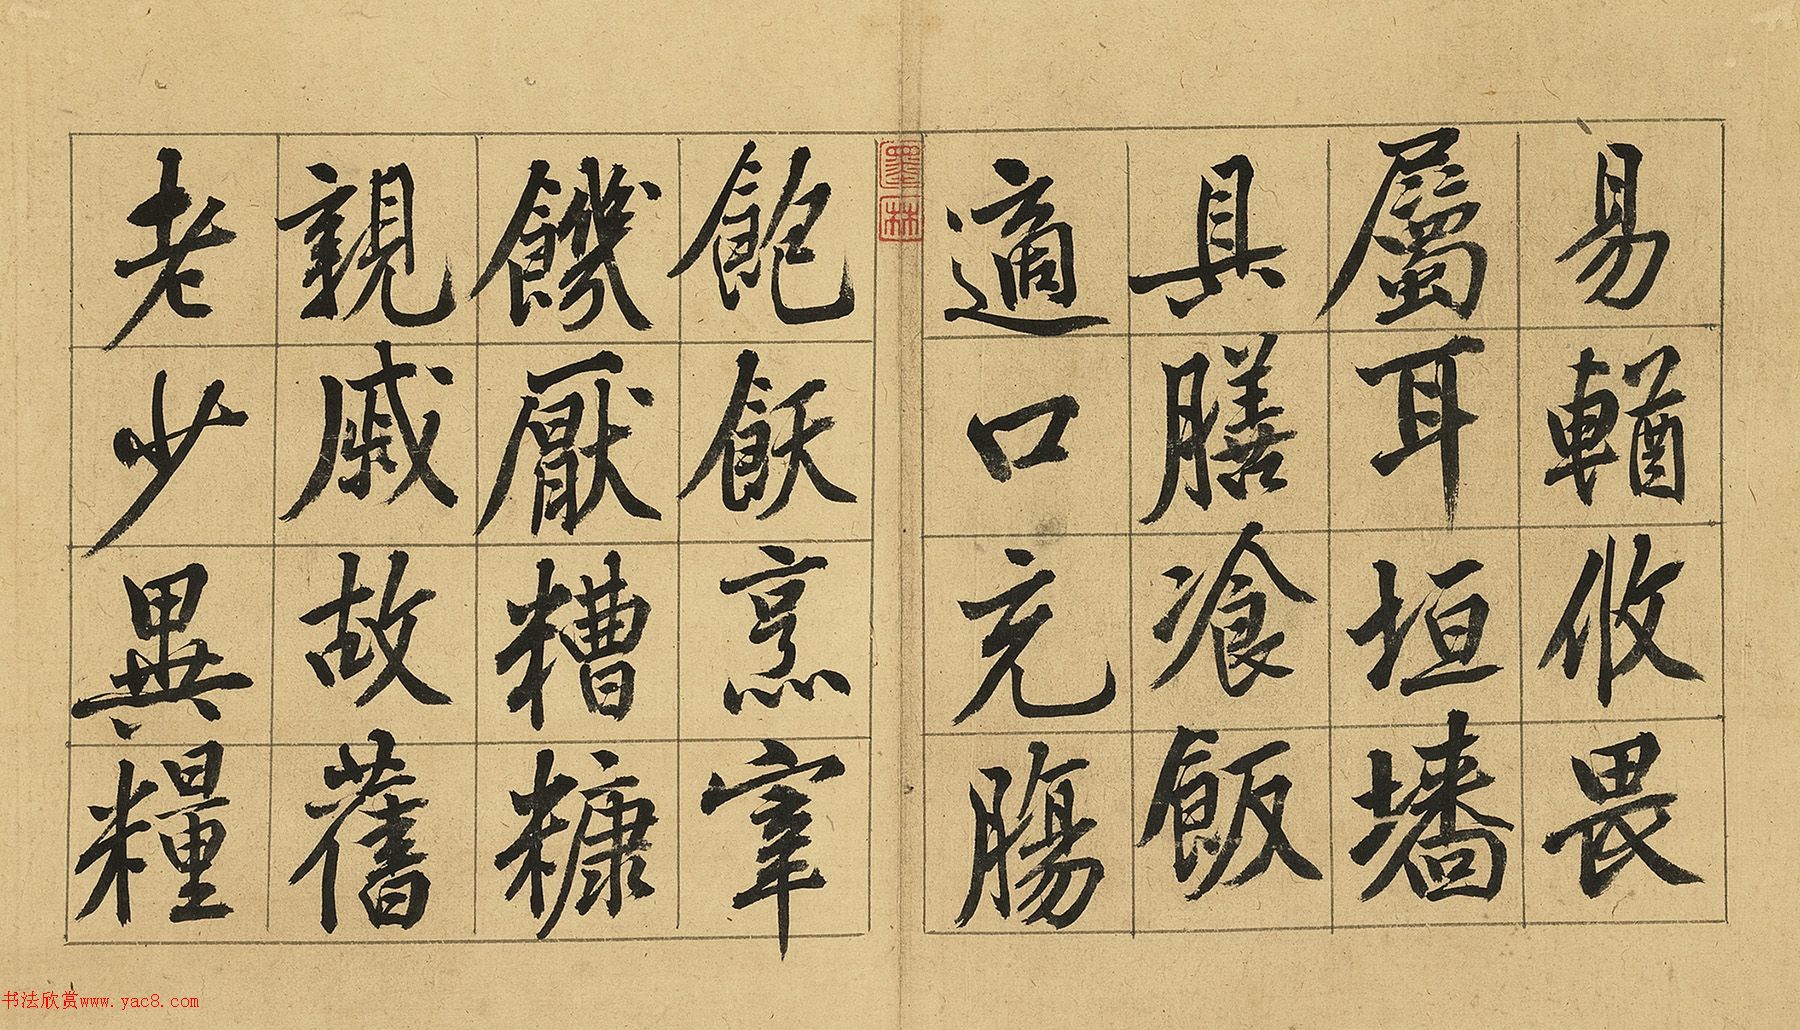 易輶攸畏
屬耳垣墻
具膳飡飯
適口充腸
飽飫烹宰
饑厭糟糠
親戚故舊
老少異糧
墨林
书法欣赏www.yac8.com